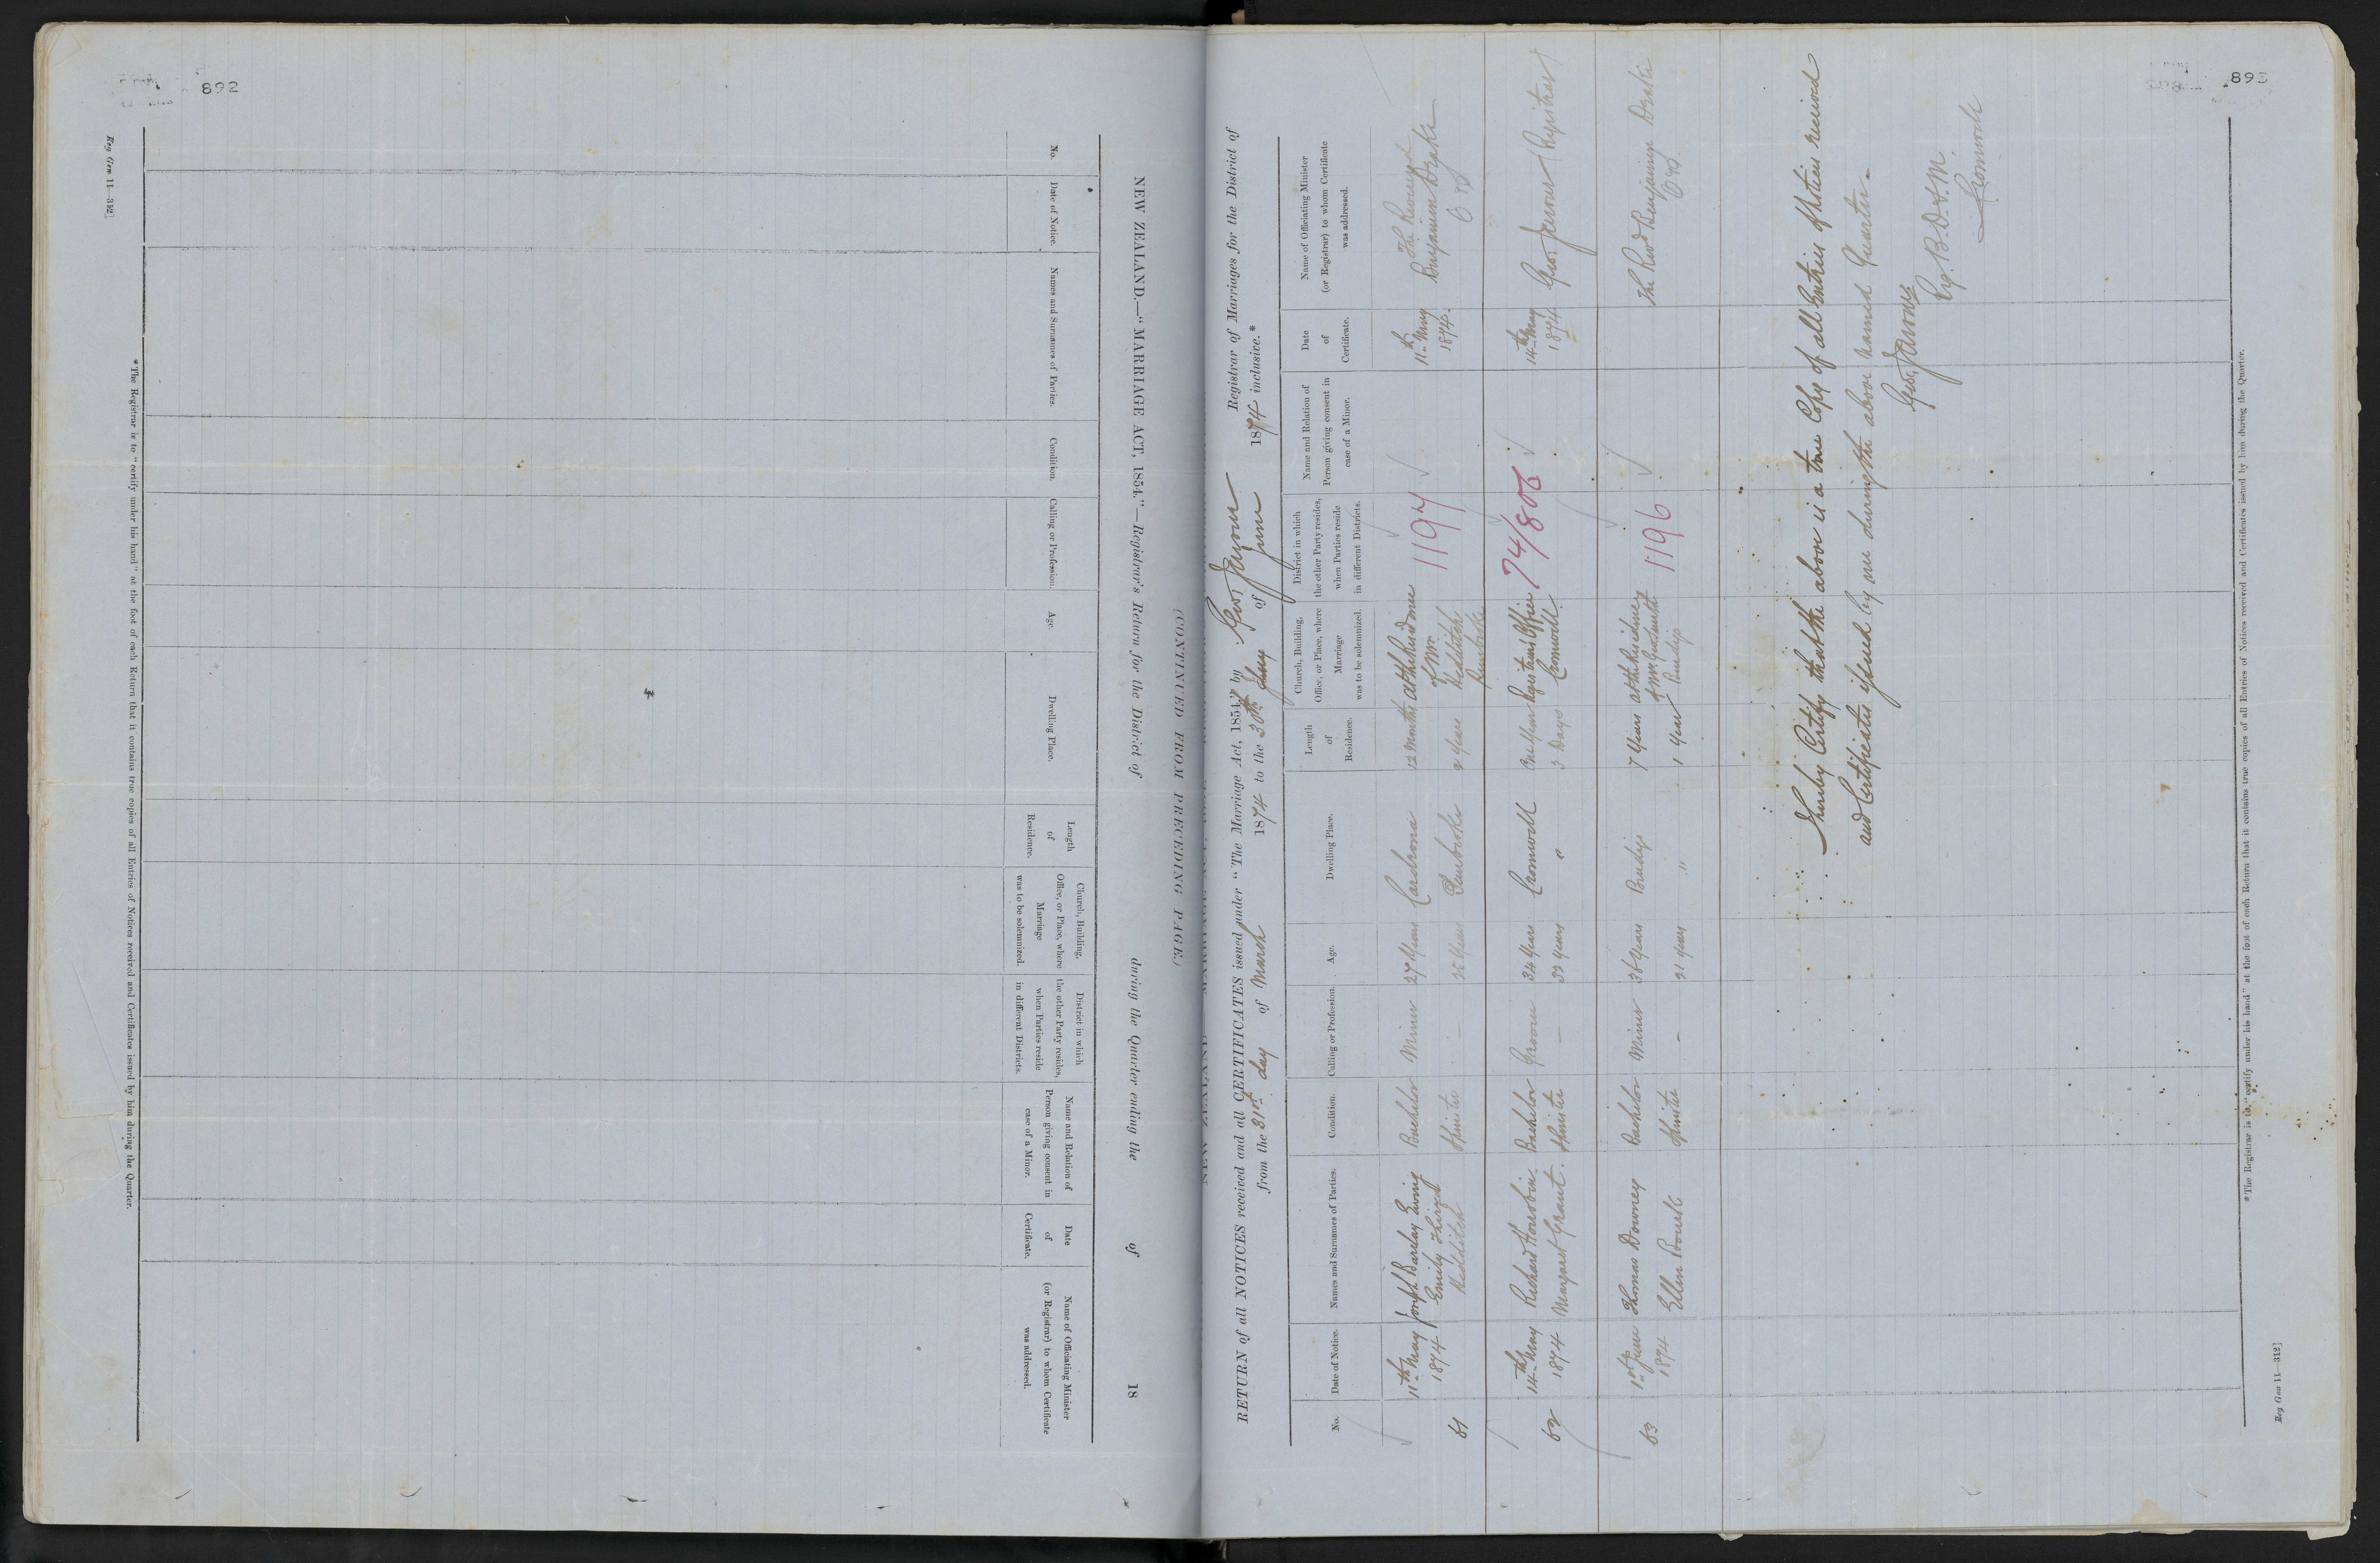 892
NEW ZEALAND.—"MARRIAGE ACT, 1854."—Registrar's Return for the District of during the Quarter ending the of 18
(CONTINUED FROM PRECEDING PAGE.)
No.
Date of Notice.
Names and Surnames of Parties.
Condition.
Calling or Profession.
Age.
Dwelling Place.
Length of Residence.
Church, Building, Office, or Place, where Marriage was to be solemnized.
District in which the other Party resides, when Parties reside in different Districts.
Name and Relation of Person giving consent in case of a Minor.
Date of Certificate.
Name of Officiating Minister (or Registrar) to whom Certificate was addressed.
*The Registrar is to "certify under his hand" at the foot of each Return that it contains true copies of all Entries of Notices received and Certificates issued by him during the Quarter.
Reg Gen 11—312]
893
RETURN of all NOTICES received and all CERTIFICATES issued under "The Marriage Act, 1854," by Geo Jenour Registrar of Marriages for the District of
from the 31st day of March 1874 to the 30th day of June 1874 inclusive.*
No.
Date of Notice.
Names and Surnames of Parties.
Condition.
Calling or Profession.
Age.
Dwelling Place.
Length of Residence.
Church, Building, Office, or Place, where Marriage was to be solemnized.
District in which the other Party resides, when Parties reside in different Districts.
Name and Relation of Person giving consent in case of a Minor.
Date of Certificate.
Name of Officiating Minister (or Registrar) to whom Certificate was addressed.
11th May Joseph Barclay Ewing Bachelor Miner 27 Years Cardrona 12 Months at the Residence 1197 11th May The Revend
61 1874 Emily Spinster — Years Pembroke 2 Years of Mr Pembroke 1874. Benjamin Drake
14th May Richard Bachelor Groom 34 Years Cromwell One Year Registrars Office 74/806 14th May Geo. Jenour (Registrar)
62 1874 Margaret Grant. Spinster — 32 Years " 3 Days Cromwell. 1874
1st June Thomas Downey Bachelor Miner 38 Years Bendigo 7 Years at the Residence 1196 The Revd Benjaming Drake
63 1874 Ellen Spinster — 21 Years " 1 Year of Mr Bendigo
I hereby Certify that the above is a true Copy of all Entries of Notices received
and Certificates issued by me during the above named Quarter.
Geo. Jenour
Cromwell
*The Registrar is to "certify under his hand" at the foot of each Return that it contains true copies of all Entries of Notices received and Certificates issued by him during the Quarter.
Reg Gen 11—312]